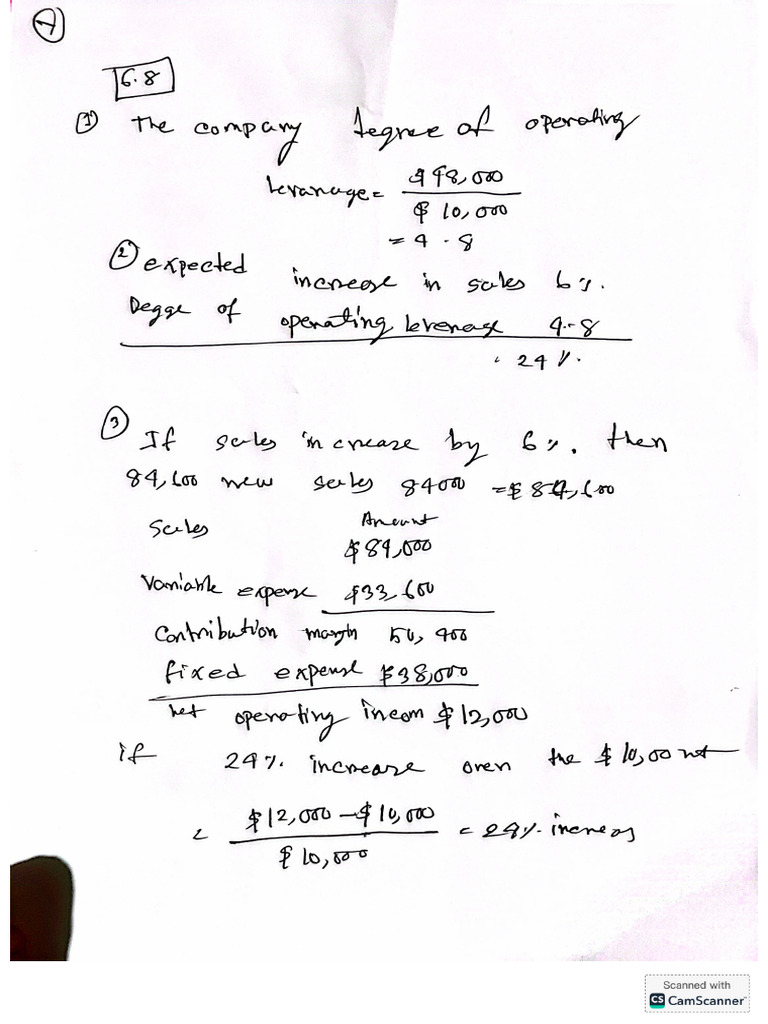 7
6.8
① The company degree of operating
levarage = $48,000 / $10,000
= 4.8
② expected increase in sales 6%.
Degge of operating leverage 4.8
24%.
③ If sales increase by 6%. then
84,600 new sales 84000 = $84,600
Amount
Sales $84,000
Variable expense $33,600
Contribution margin 50,400
fixed expense $38,000
net operating incom $12,000
if 24%. increase over the $10,00 net
= $12,000 - $10,000 / $10,000 = 24% increas
Scanned with
CS CamScanner